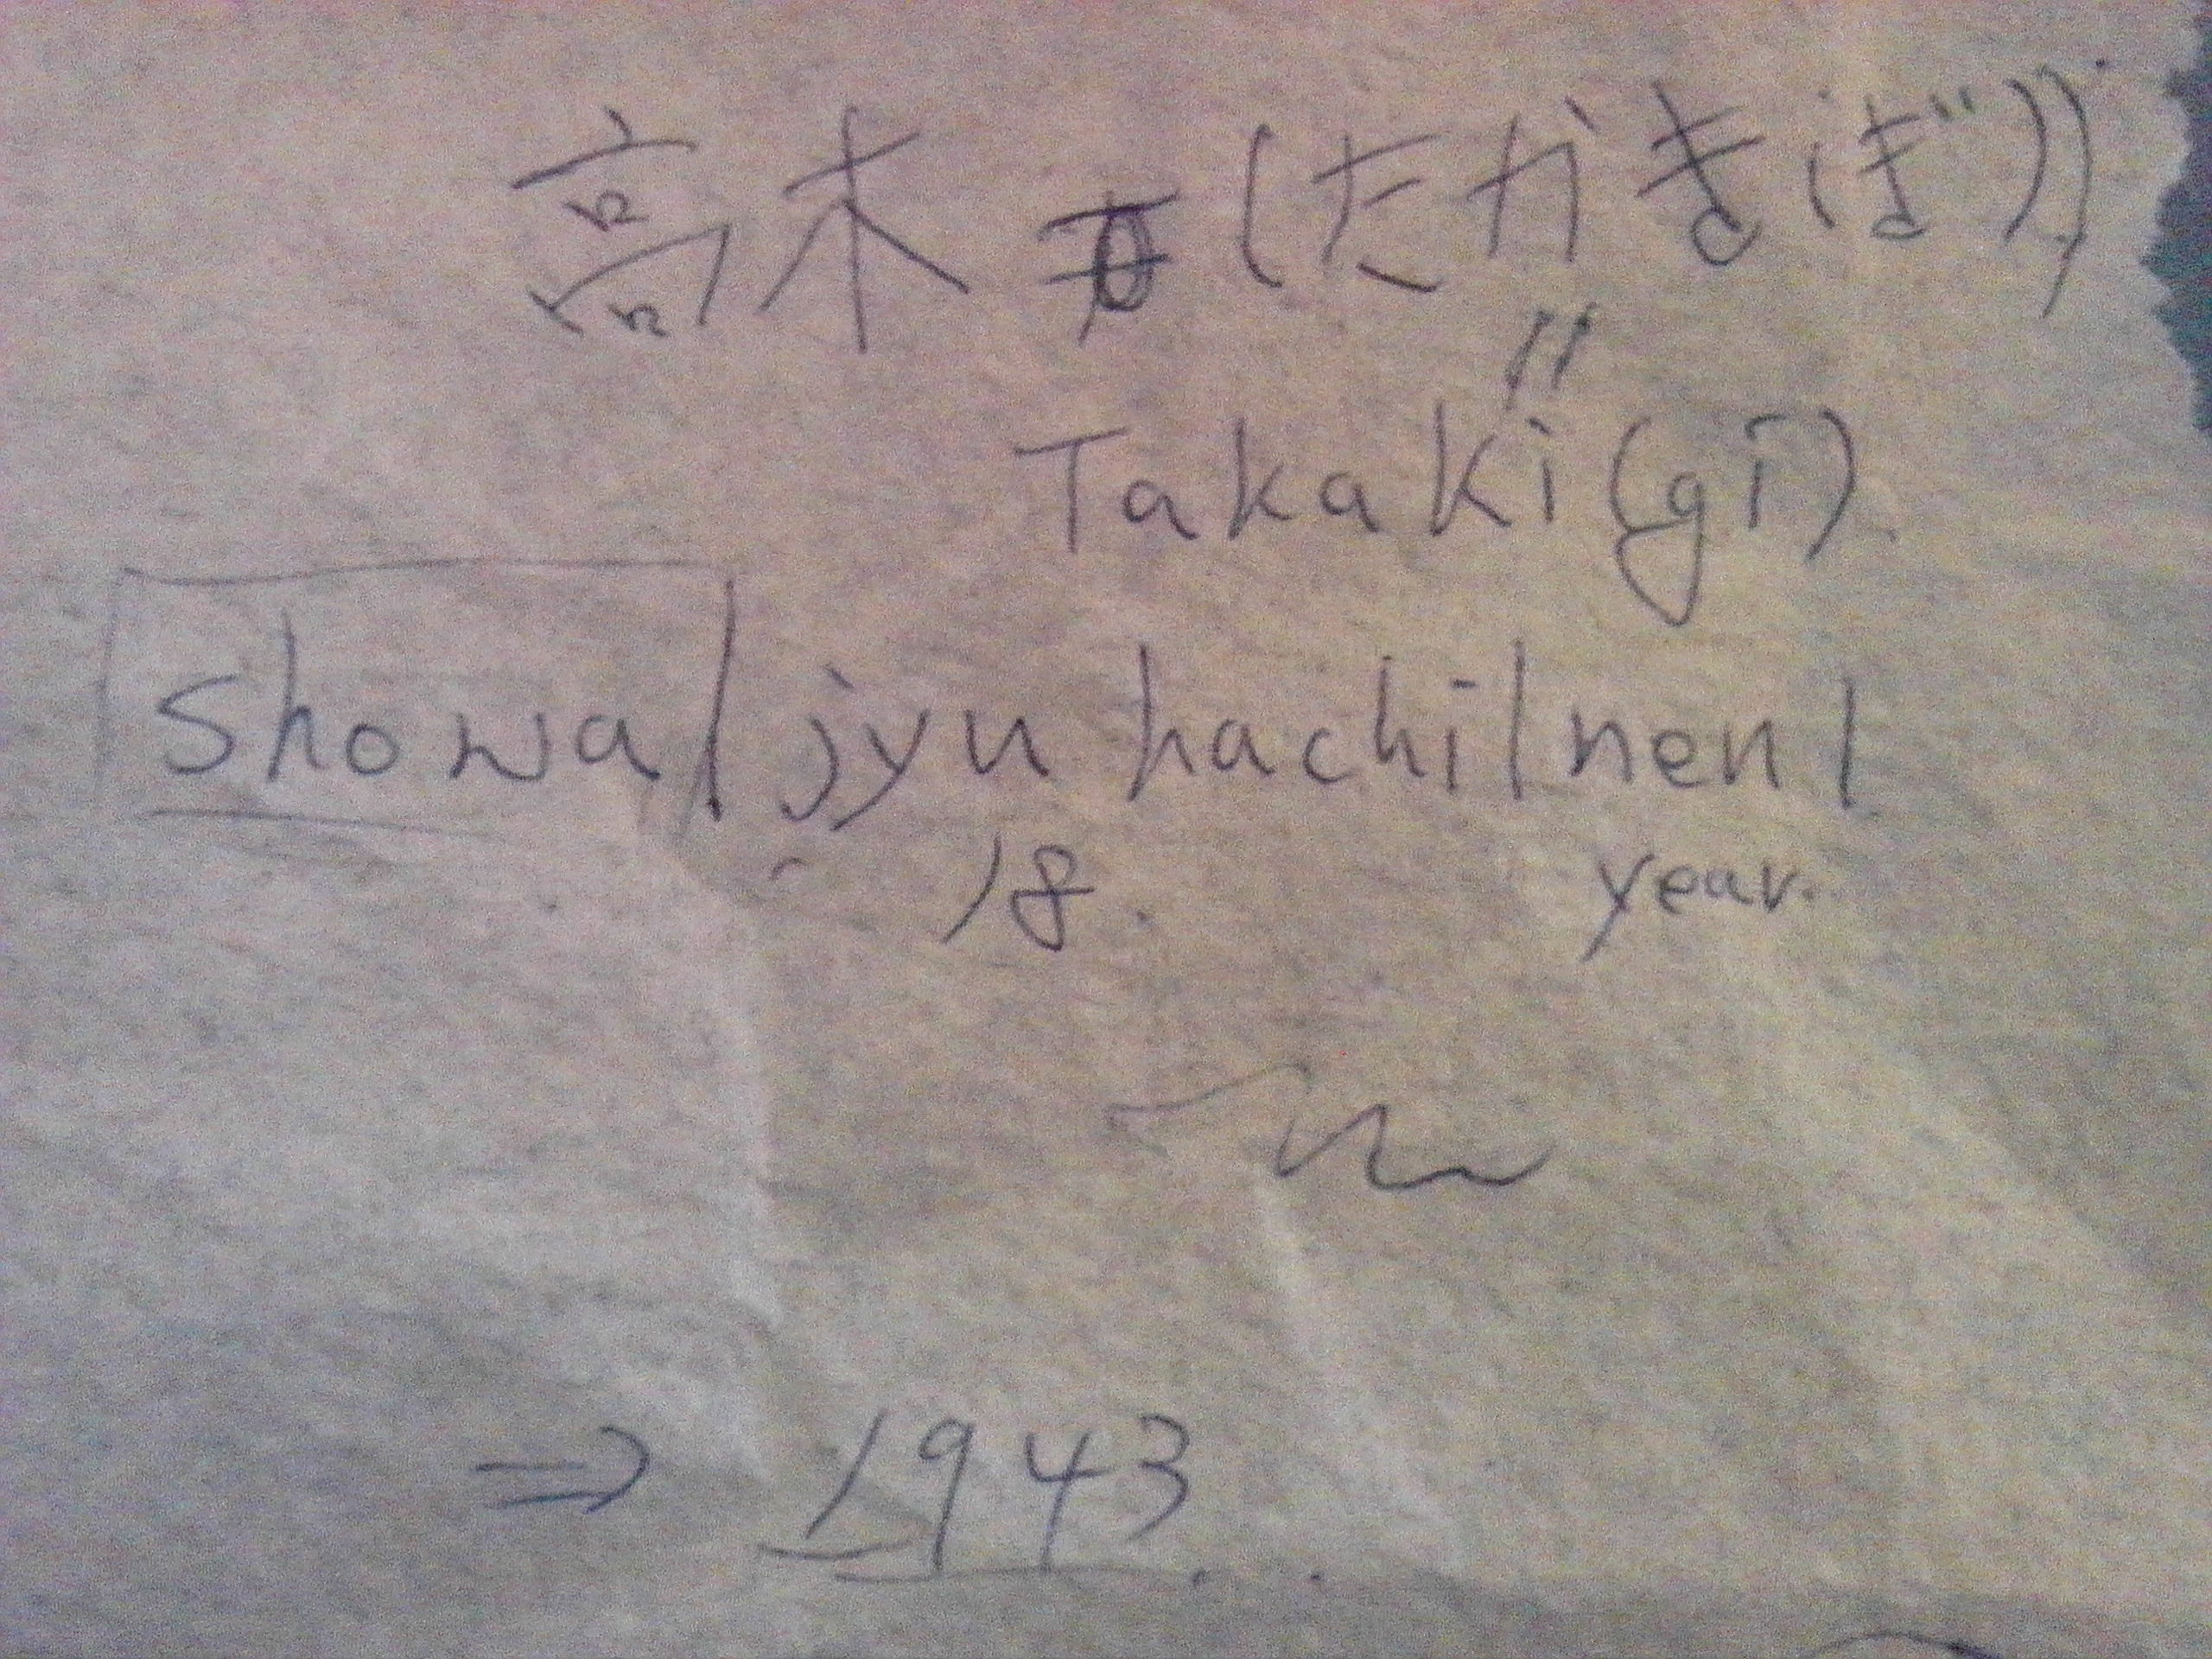 高木 (たかき(ぎ))
〃
Takaki(gi).
Showa | jyu hachi | nen |
18. year.
⇒ 1943.